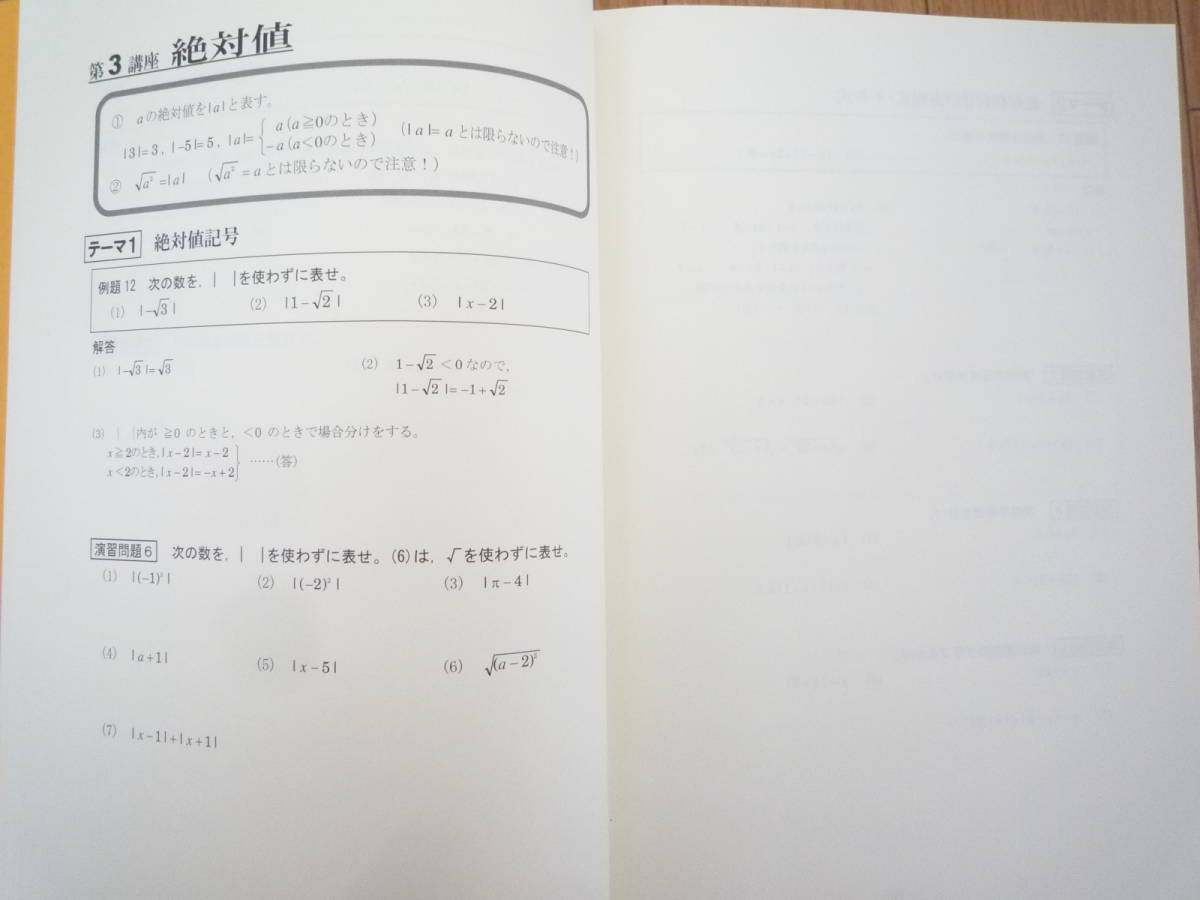 第3講座 絶対値
① aの絶対値を|a|と表す。
|3|=3, |-5|=5, |a|={ a(a≧0のとき) -a(a<0のとき) (|a|=aとは限らないので注意！)
② √a²=|a| (√a²=aとは限らないので注意！)
テーマ1 絶対値記号
例題12 次の数を, | |を使わずに表せ。
(1) |-√3| (2) |1-√2| (3) |x-2|
解答
(1) |-√3|=√3 (2) 1-√2<0なので,
|1-√2|=-1+√2
(3) | |内が≧0のときと, <0のときで場合分けをする。
x≧2のとき,|x-2|=x-2
x<2のとき,|x-2|=-x+2 } ……(答)
演習問題6 次の数を, | |を使わずに表せ。(6)は, √を使わずに表せ。
(1) |(-1)²| (2) |(-2)²| (3) |π-4|
(4) |a+1| (5) |x-5| (6) √(a-2)²
(7) |x-1|+|x+1|